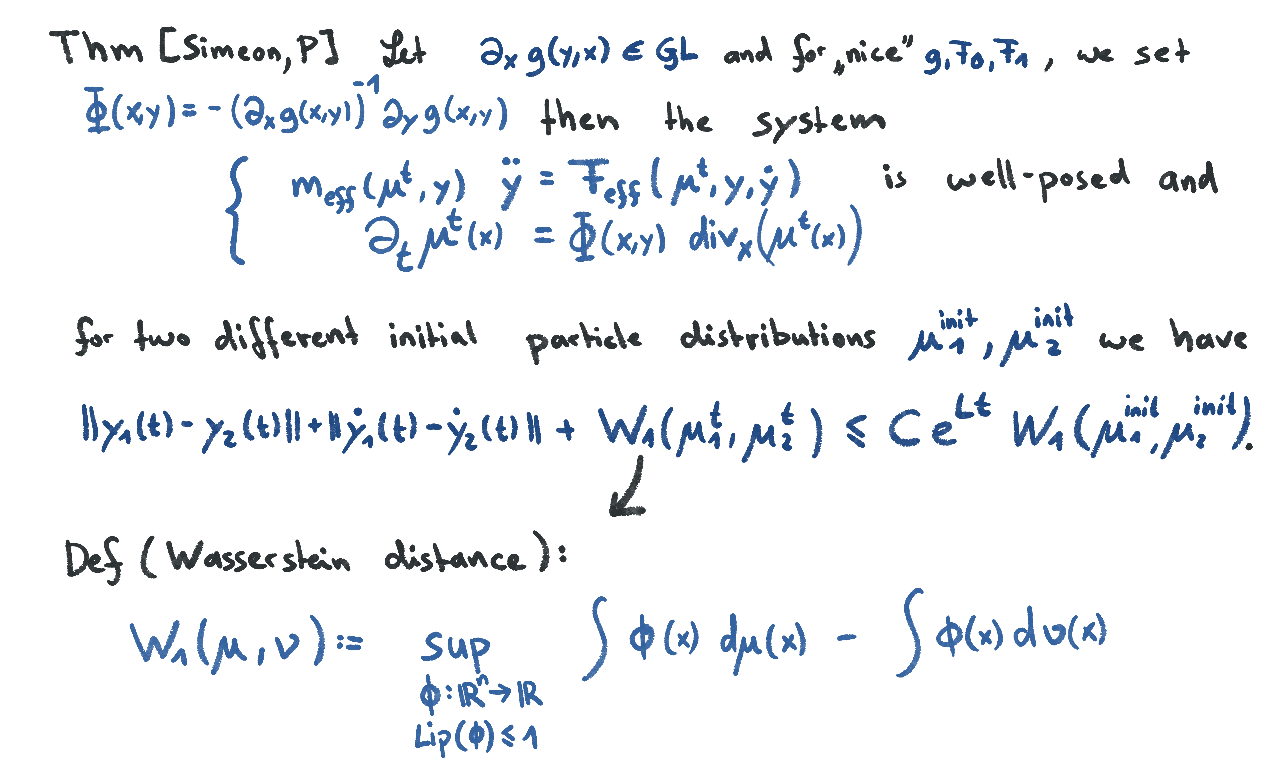 Thm [Simeon, P] Let ∂ₓ g(y,x) ∈ GL and for „nice" g, F₀, F₁, we set
Φ(x,y) = - (∂ₓg(x,y))⁻¹ ∂ᵧ g(x,y) then the system
{ m_eff(μᵗ, y) ÿ = F_eff(μᵗ, y, ẏ) is well-posed and
∂ₜ μᵗ(x) = Φ(x,y) divₓ(μᵗ(x))
for two different initial particle distributions μ₁^init, μ₂^init we have
||y₁(t) - y₂(t)|| + ||ẏ₁(t) - ẏ₂(t)|| + W₁(μ₁ᵗ, μ₂ᵗ) ⩽ C e^{Lt} W₁(μ₁^init, μ₂^init).
Def (Wasserstein distance):
W₁(μ, ν) := sup ∫ ϕ(x) dμ(x) - ∫ ϕ(x) dν(x)
ϕ: ℝⁿ → ℝ
Lip(ϕ) ⩽ 1